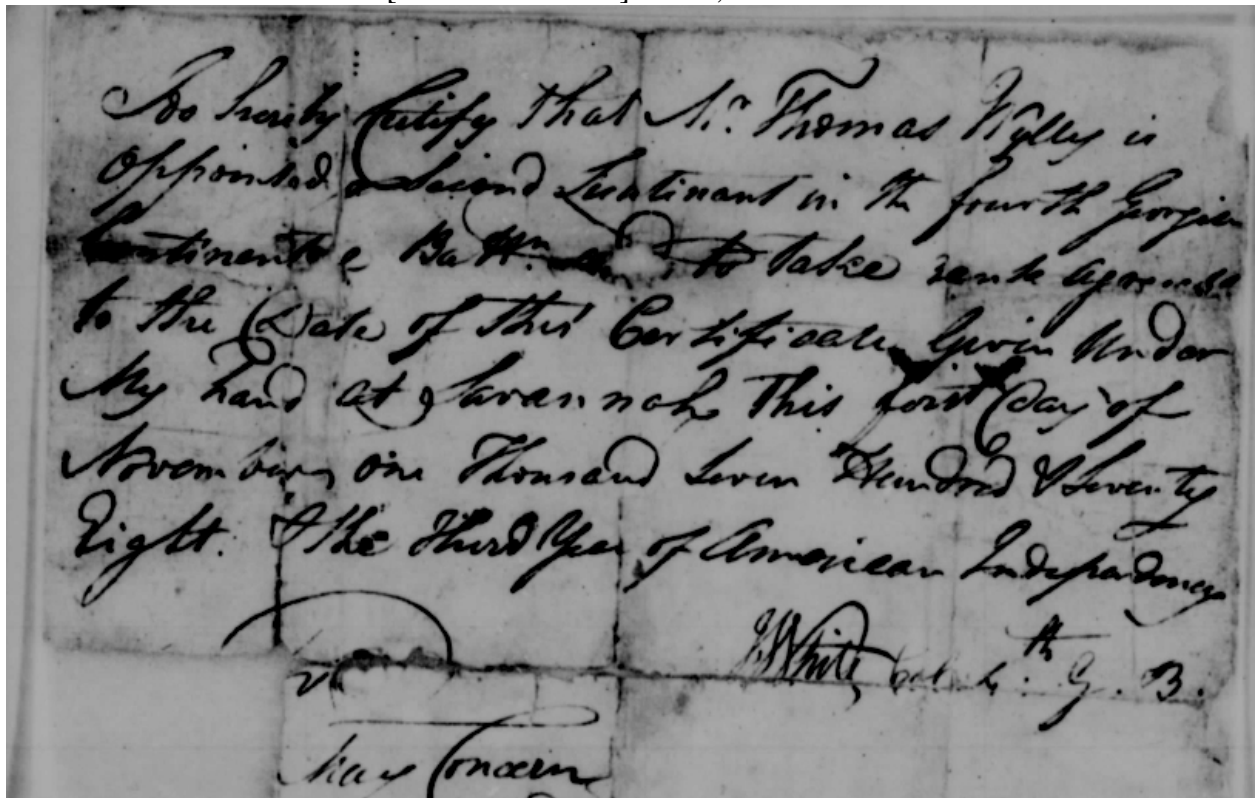 Do hereby Certify that Mr. Thomas Wylly is
Appointed a Second Lieutinant in the fourth Georgia
Continental Battn. to take rank agreeable
to the Date of this Certificate Given Under
My hand at Savannah This first Day of
November one Thousand Seven Hundred & Seventy
Eight. & the Third Year of American Independency
J White Col. 4th G. B.
May Concern